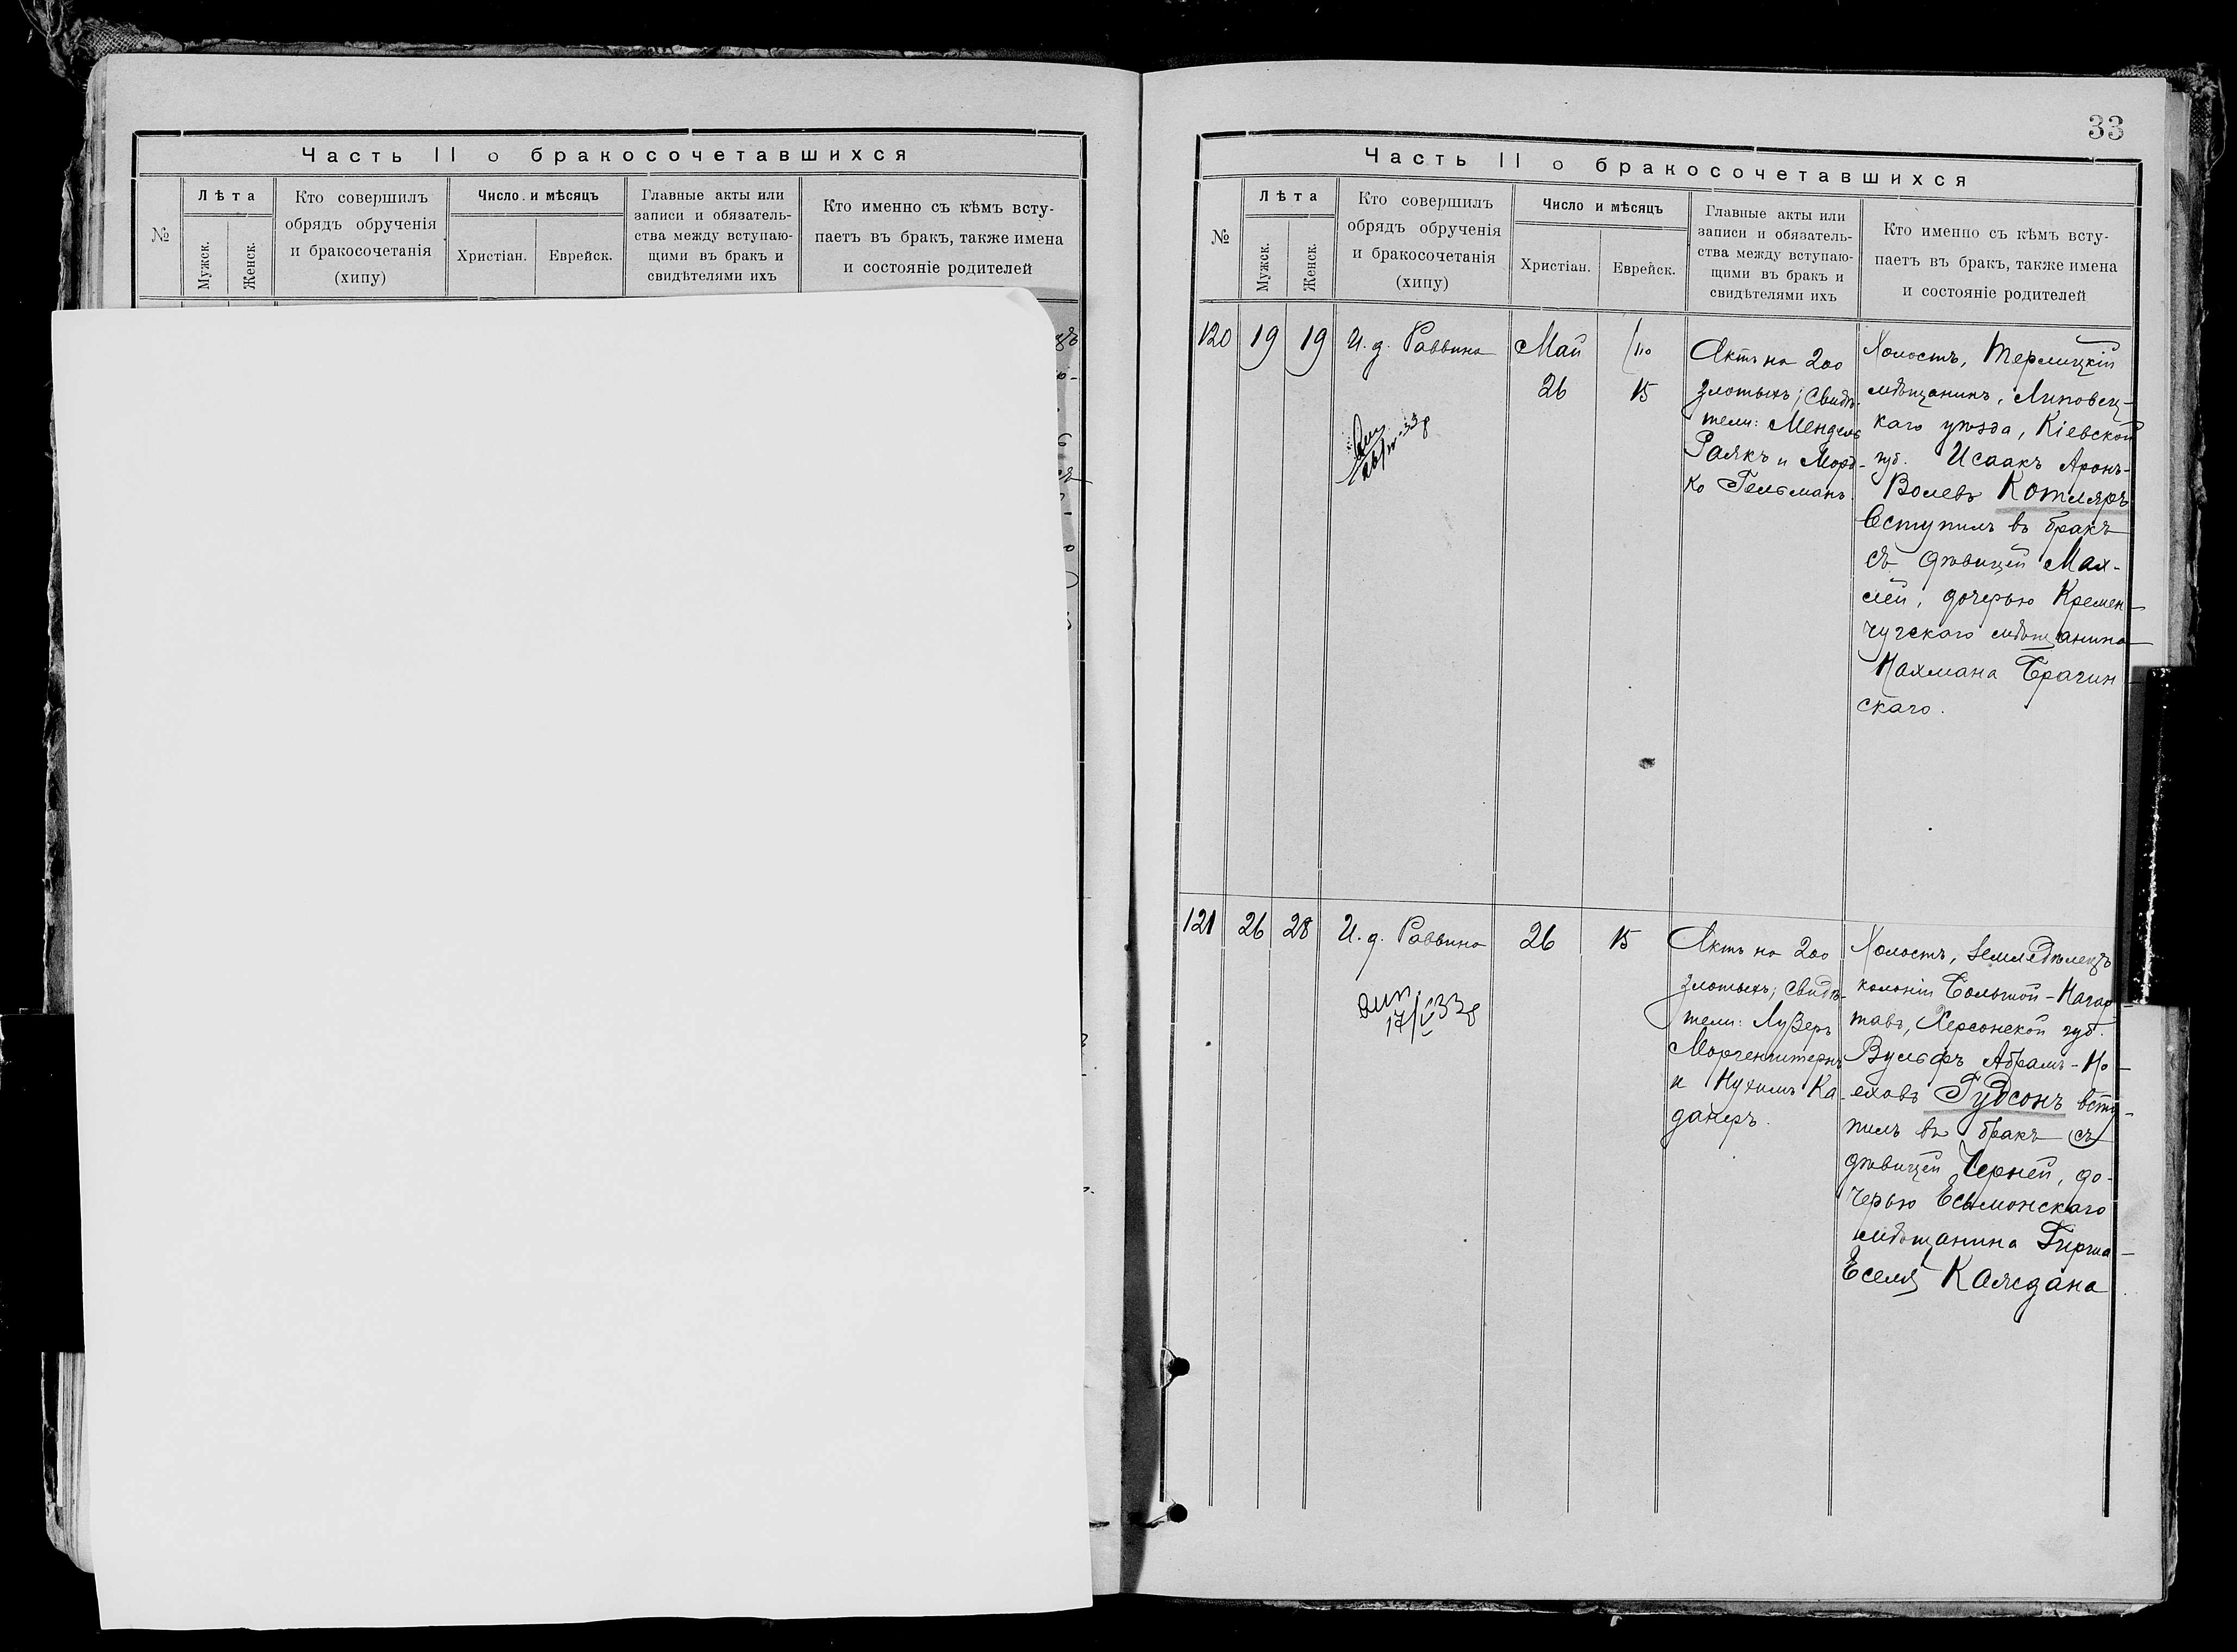 Часть II о бракосочетавшихся
№
Лѣта
Мужск.
Женск.
Кто совершилъ
обрядъ обрученія
и бракосочетанія
(хипу)
Число и мѣсяцъ
Христіан.
Еврейск.
Главные акты или
записи и обязатель-
ства между вступаю-
щими въ бракъ и
свидѣтелями ихъ
Кто именно съ кѣмъ всту-
паетъ въ бракъ, также имена
и состояніе родителей
33
Часть II о бракосочетавшихся
№
Лѣта
Мужск.
Женск.
Кто совершилъ
обрядъ обрученія
и бракосочетанія
(хипу)
Число и мѣсяцъ
Христіан.
Еврейск.
Главные акты или
записи и обязатель-
ства между вступаю-
щими въ бракъ и
свидѣтелями ихъ
Кто именно съ кѣмъ всту-
паетъ въ бракъ, также имена
и состояніе родителей
120
19
19
И. д. Раввина
Май
26
15
Актъ на 200
злотыхъ; Свидѣ-
тели: Мендель
Раякъ и Морд-
ко Гельманъ.
Холостъ, Терлицкій
мѣщанинъ, Липовец-
каго уѣзда, Кіевской
губ. Исаакъ Аронъ-
Волевъ Котляръ
вступилъ въ бракъ
съ дѣвицей Мах-
лей, дочерью Кремен-
чугскаго мѣщанина
Нахмана Брагин
скаго.
121
26
28
И. д. Раввина
26
15
Актъ на 200
злотыхъ; Свидѣ-
тели: Лузеръ
Моргенштернъ
и Нухимъ Ка-
данеръ.
Холостъ, земледѣлецъ
колоніи Большой-Нагар-
тавъ, Херсонской губ.
Вульфъ Абрамъ-Но-
еховъ Гудсонъ всту-
пилъ въ бракъ съ
дѣвицей Черней, до-
черью Есьмонскаго
мѣщанина Гирша-
Еселя Каждана